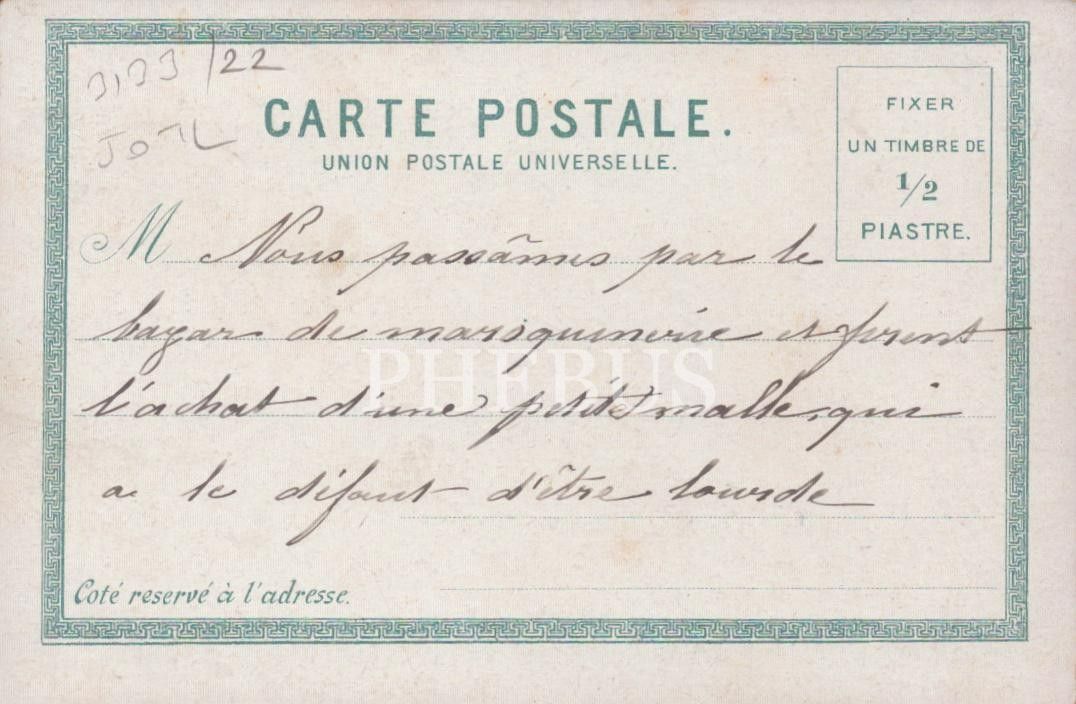 /22
CARTE POSTALE.
UNION POSTALE UNIVERSELLE.
FIXER
UN TIMBRE DE
1/2
PIASTRE.
M Nous passâmes par le
bazar de maroquinerie et firent
l'achat d'une petite malle, qui
a le défaut d'être lourde
PHEBUS
Coté reservé à l'adresse.